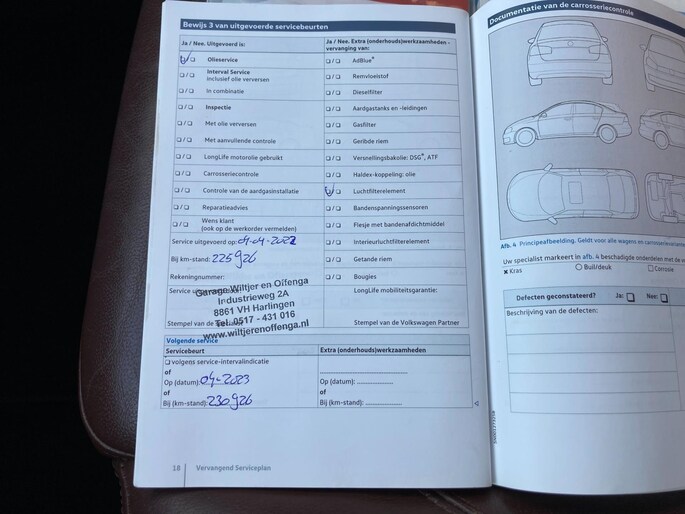 Bewijs 3 van uitgevoerde servicebeurten
Ja / Nee. Uitgevoerd is:
Olieservice
Interval Service
inclusief olie verversen
In combinatie
Inspectie
Met olie verversen
Met aanvullende controle
LongLife motorolie gebruikt
Carrosseriecontrole
Controle van de aardgasinstallatie
Reparatieadvies
Wens klant
(ook op de werkorder vermelden)
Service uitgevoerd op: 04-04-2022
Bij km-stand: 225926
Rekeningnummer:
Service
Stempel van de
Garage Wiltjer en Offenga
Industrieweg 2A
8861 VH Harlingen
Tel. 0517 - 431 016
www.wiltjerenoffenga.nl
Ja / Nee. Extra (onderhouds)werkzaamheden -
vervanging van:
AdBlue®
Remvloeistof
Dieselfilter
Aardgastanks en -leidingen
Gasfilter
Geribde riem
Versnellingsbakolie: DSG®, ATF
Haldex-koppeling: olie
Luchtfilterelement
Bandenspanningssensoren
Flesje met bandenafdichtmiddel
Interieurluchtfilterelement
Getande riem
Bougies
LongLife mobiliteitsgarantie:
Stempel van de Volkswagen Partner
Volgende service
Servicebeurt
volgens service-intervalindicatie
of
Op (datum): 04-2023
of
Bij (km-stand): 230926
Extra (onderhouds)werkzaamheden
Op (datum): ..............
of
Bij (km-stand): ..............
18 Vervangend Serviceplan
Documentatie van de carrosseriecontrole
Afb. 4 Principeafbeelding. Geldt voor alle wagens en carrosserievarianten
Uw specialist markeert in afb. 4 beschadigde onderdelen met de
Kras
Buil/deuk
Corrosie
Defecten geconstateerd? Ja: Nee:
Beschrijving van de defecten: